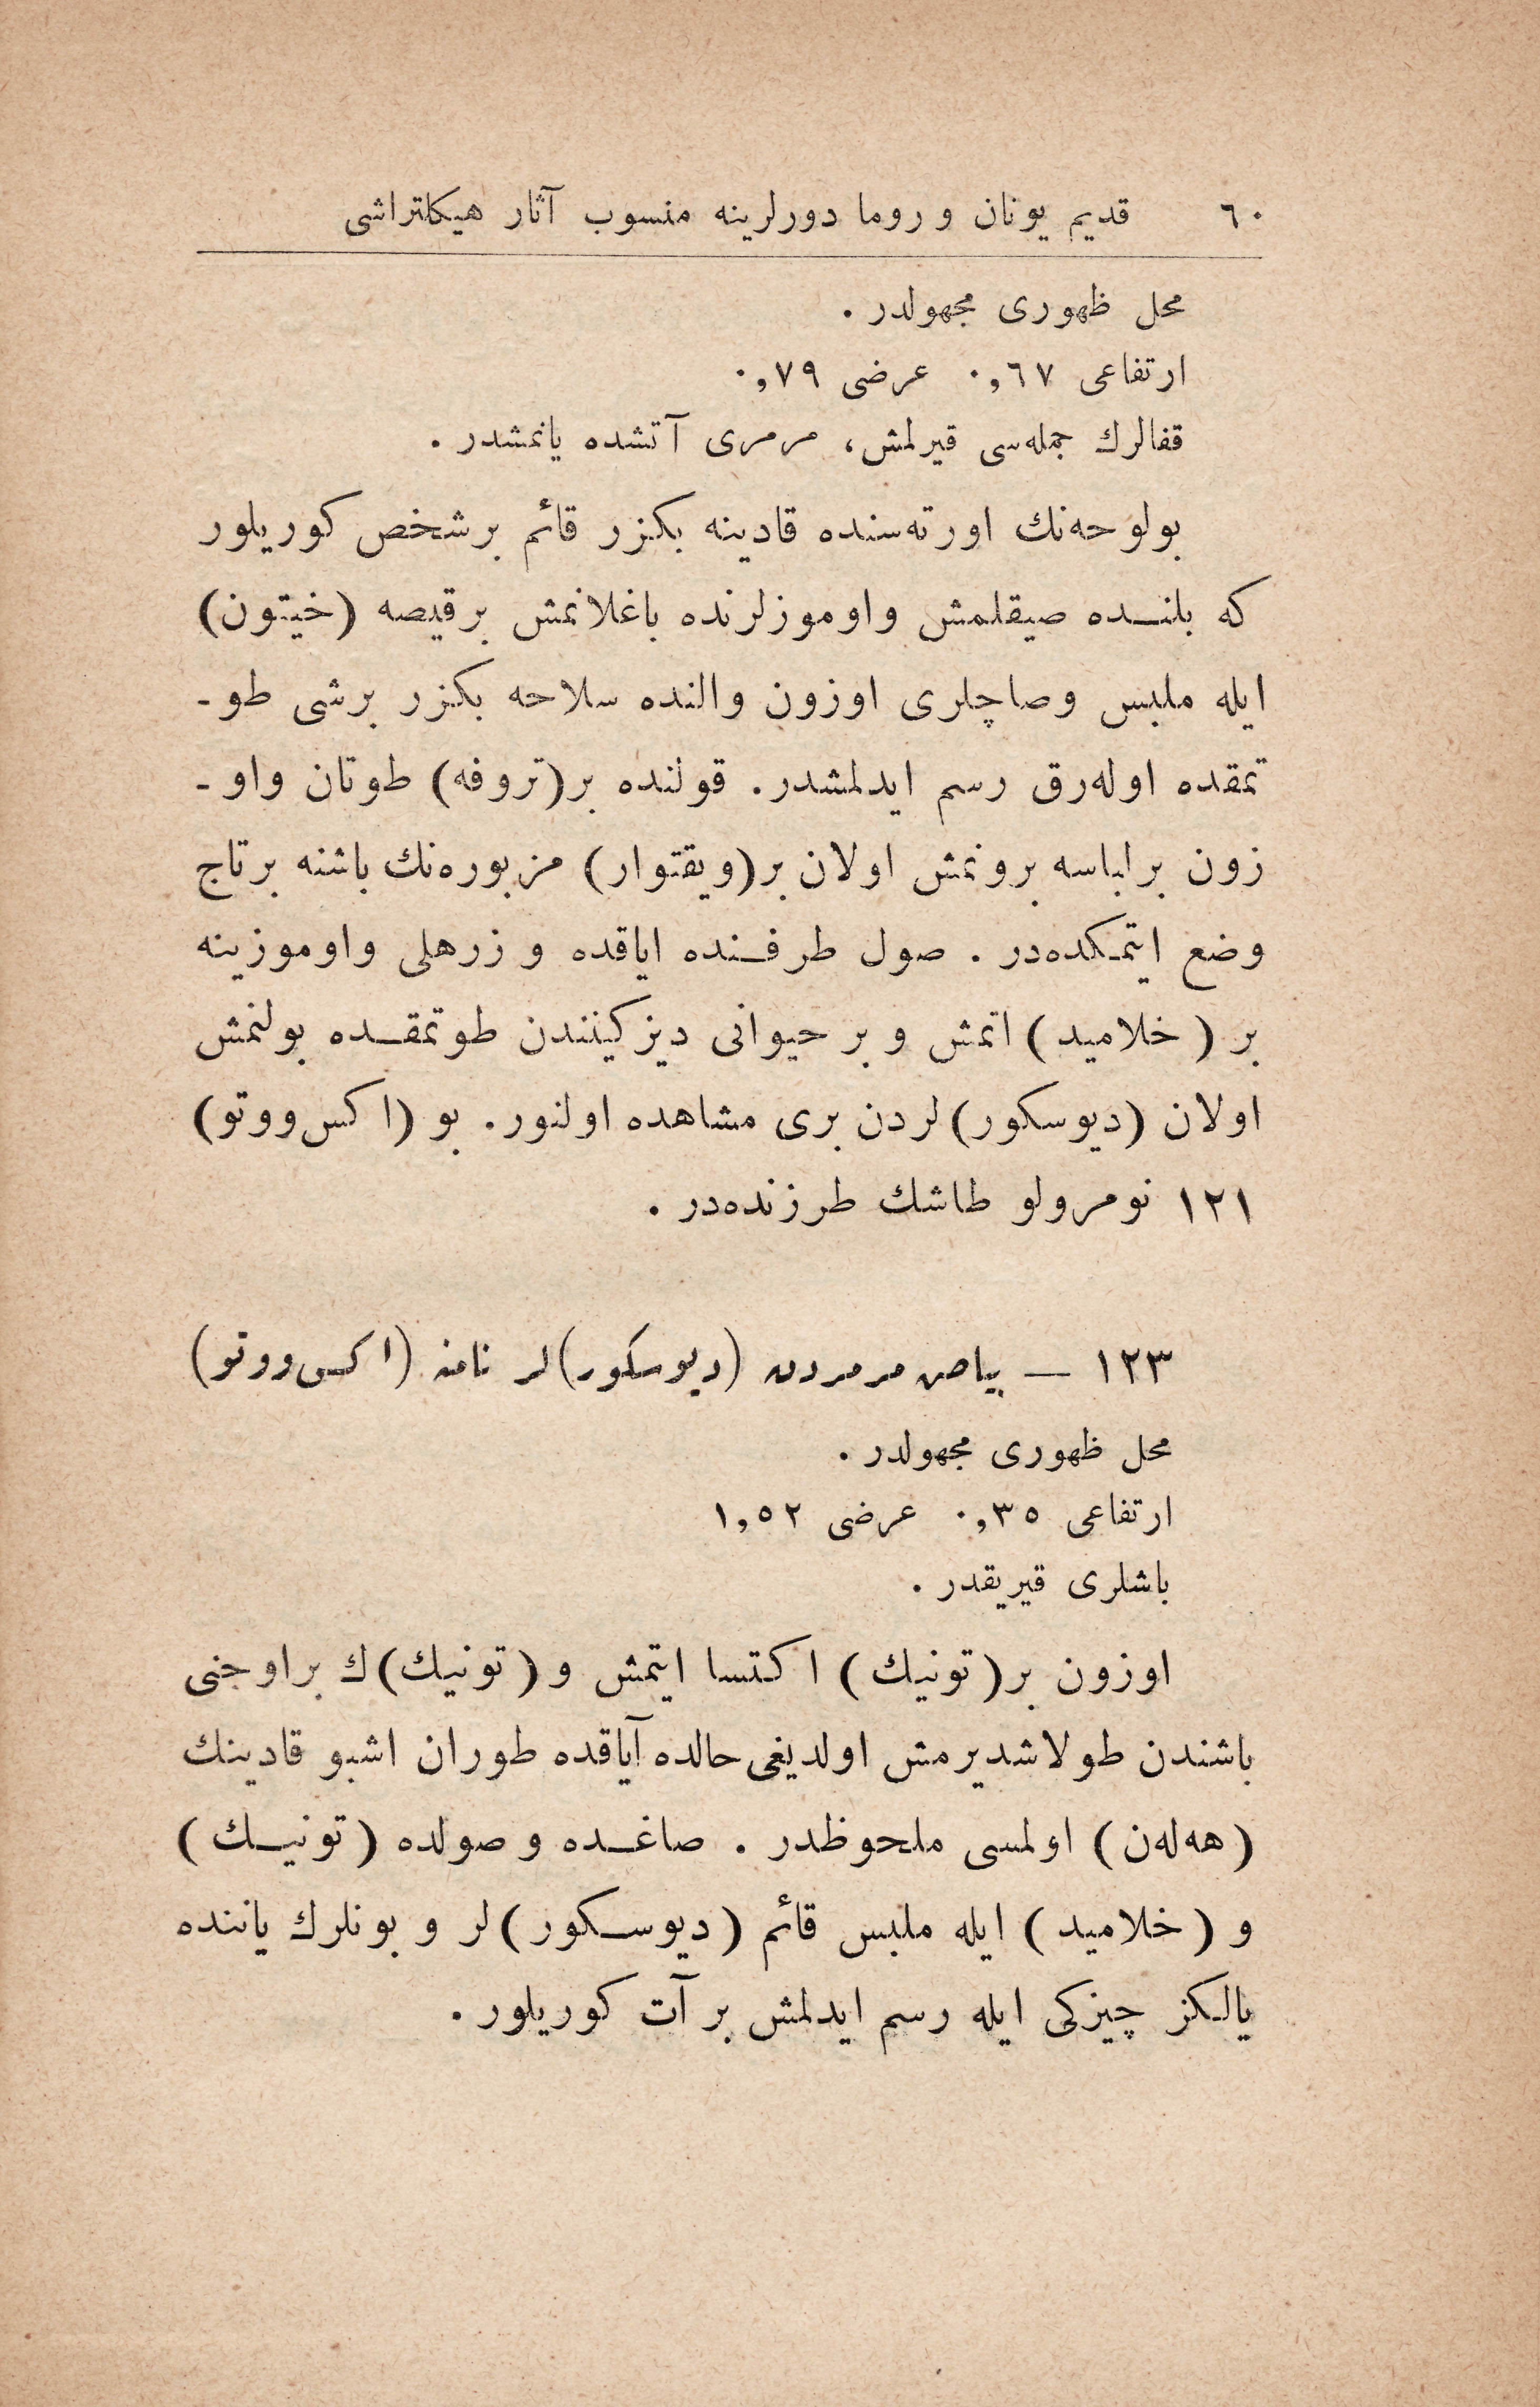 ٦٠ قديم يونان و روما دورلرينه منسوب آثار هيكلتراشى
محل ظهورى مجهولدر .
ارتفاعى ٠,٦٧ عرضى ٠,٧٩
قفالرك جمله‌سى قيرلمش، مرمرى آتشده يانمشدر .
بولوحه‌نك اورته‌سنده قادينه بكزر قائم برشخص كوريلور
كه بلنــده صيقلمش واوموزلرنده باغلانمش برقيصه (خيتون)
ايله ملبس وصاچلرى اوزون والنده سلاحه بكزر برشى طو ـ
تمقده اوله‌رق رسم ايدلمشدر. قولنده بر(تروفه) طوتان واو ـ
زون برلباسه برونمش اولان بر(ويقتوار) مزبوره‌نك باشنه برتاج
وضع ايتمكده‌در . صول طرفــنده اياقده و زرهلى واوموزينه
بر (خلاميد) اتمش و بر حيوانى ديزكينندن طوتمقــده بولنمش
اولان (ديوسكور)لردن برى مشاهده اولنور. بو (اكس‌ووتو)
١٢١ نومرولو طاشك طرزنده‌در .
١٢٣ — بياض مرمردن (ديوسكور)لر نامنه (اكس‌ووتو)
محل ظهورى مجهولدر .
ارتفاعى ٠,٣٥ عرضى ١,٥٢
باشلرى قيريقدر .
اوزون بر(تونيك) اكتسا ايتمش و (تونيك)ك براوجنى
باشندن طولاشديرمش اولديغى حالده آياقده طوران اشبو قادينك
(هه‌له‌ن) اولمسى ملحوظدر . صاغــده و صولده (تونيــك)
و (خلاميد) ايله ملبس قائم (ديوســكور)لر و بونلرك ياننده
يالكز چيزكى ايله رسم ايدلمش بر آت كوريلور .